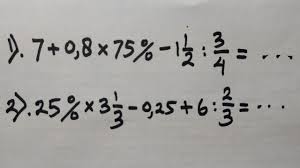 1). 7 + 0,8 × 75% - 1 1/2 : 3/4 = ...
2). 25% × 3 1/3 - 0,25 + 6 : 2/3 = ...